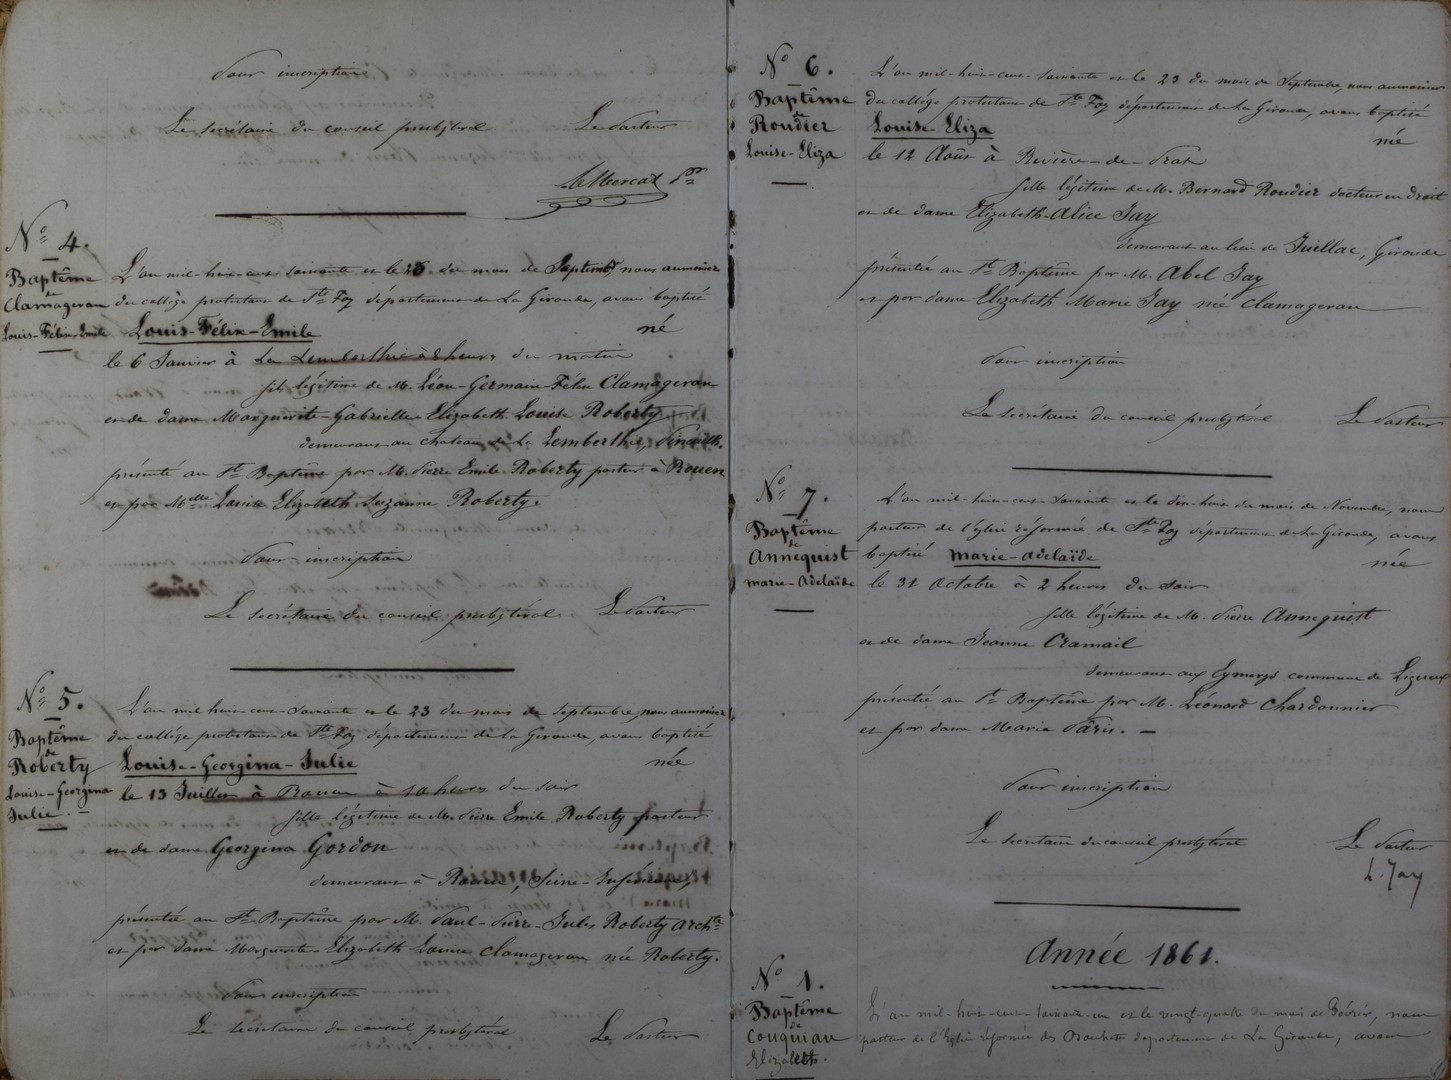 Pour inscription
Le secrétaire du conseil presbytéral Le Pasteur
N° 4.
Baptême
de
Clamageran
Louis-Félix-Emile
L'an mil-huit-cent soixante et le 25 du mois de Septembre nous aumônier
du collège protestant de Ste Foy département de La Gironde, avons baptisé
Louis-Félix-Emile né
le 6 Janvier à La Lemberthie à 8 heures du matin
fils légitime de M. Léon-Germain-Félix Clamageran
et de dame Marguerite-Gabrielle-Elizabeth Louise Roberty
demeurant au chateau de La Lemberthie,
présenté au St Baptême par M. Pierre Emile Roberty pasteur à Rouen
et par Melle Louise Elizabeth Suzanne Roberty.
Pour inscription
Le secrétaire du conseil presbytéral Le Pasteur
N° 5.
Baptême
de
Roberty
Louise-Georgina
Julie.
L'an mil huit-cent soixante et le 23 du mois de septembre, nous aumônier
du collége protestant de Ste Foy département de la Gironde, avons baptisé
Louise-Georgina-Julie née
le 13 Juillet à Rouen à 10 heures du soir
fille légitime de M. Pierre Emile Roberty pasteur
et de dame Georgina Gordon
demeurant à Rouen, Seine-Inférieure,
présentée au St Baptême par M. Paul-Pierre-Jules Roberty archte
et par dame Marguerite-Elizabeth Louise Clamageran née Roberty.
Pour inscription
Le secrétaire du conseil presbytéral Le Pasteur
N° 6.
Baptême
de
Roudier
Louise-Eliza
L'an mil-huit-cent soixante et le 23 du mois de Septembre, nous aumônier
du collége protestant de Ste Foy département de La Gironde, avons baptisé
Louise-Eliza née
le 12 Août à Rivière-de-Prat
fille légitime de M. Bernard Roudier docteur en droit
et de dame Elizabeth-Alice Jay
demeurant au lieu de Juillac, Gironde
présentée au St Baptême par M. Abel Jay
et par dame Elizabeth Marie Jay née Clamageran
Pour inscription
Le secrétaire du conseil presbytéral Le Pasteur
N° 7.
Baptême
de
Annequist
marie-Adelaïde
L'an mil-huit-cent soixante et le dix-huit du mois de Novembre, nous
pasteur de l'Eglise réformée de Ste Foy département de La Gironde, avons
baptisé marie-adelaïde née
le 31 Octobre à 2 heures du soir
fille légitime de M. Pierre Annequist
et de dame Jeanne Cramail
demeurant aux Eymerys commune de
présentée au St Baptême par M. Léonard Chardonnier
et par dame Marie Pâris.
Pour inscription
Le secrétaire du conseil presbytéral Le Pasteur
L. Jay
Année 1861.
N° 1.
Baptême
de
Couquiau
Elizabeth.
L'an mil-huit-cent soixante-un et le vingt-quatre du mois de Février, nous
pasteur de l'Eglise réformée des département de La Gironde, avons